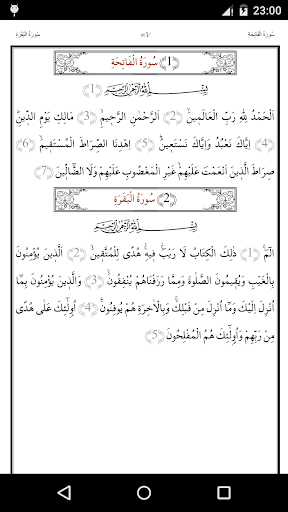 23:00
سُورَةُ الْفَاتِحَةِ
سُورَةُ الْبَقَرَةِ
﴿1﴾ سُورَةُ الْفَاتِحَةِ
بِسْمِ اللّٰهِ الرَّحْمٰنِ الرَّحِيمِ ﴿1﴾
اَلْحَمْدُ لِلّٰهِ رَبِّ الْعَالَمِينَۙ ﴿2﴾ اَلرَّحْمٰنِ الرَّحِيمِۙ ﴿3﴾ مَالِكِ يَوْمِ الدِّينِۜ
﴿4﴾ اِيَّاكَ نَعْبُدُ وَاِيَّاكَ نَسْتَعِينُۜ ﴿5﴾ اِهْدِنَا الصِّرَاطَ الْمُسْتَقِيمَۙ ﴿6﴾
صِرَاطَ الَّذِينَ اَنْعَمْتَ عَلَيْهِمْۙ غَيْرِ الْمَغْضُوبِ عَلَيْهِمْ وَلَا الضَّٓالِّينَ ﴿7﴾
﴿2﴾ سُورَةُ الْبَقَرَةِ
بِسْمِ اللّٰهِ الرَّحْمٰنِ الرَّحِيمِ
الٓمٓۚ ﴿1﴾ ذٰلِكَ الْكِتَابُ لَا رَيْبَۚ ف۪يهِۚ هُدًى لِلْمُتَّقِينَۙ ﴿2﴾ اَلَّذِينَ يُؤْمِنُونَ
بِالْغَيْبِ وَيُقِيمُونَ الصَّلٰوةَ وَمِمَّا رَزَقْنَاهُمْ يُنْفِقُونَۙ ﴿3﴾ وَالَّذِينَ يُؤْمِنُونَ بِمَٓا
اُنْزِلَ اِلَيْكَ وَمَٓا اُنْزِلَ مِنْ قَبْلِكَۚ وَبِالْاٰخِرَةِ هُمْ يُوقِنُونَۜ ﴿4﴾ اُو۬لٰٓئِكَ عَلٰى هُدًى
مِنْ رَبِّهِمْ وَاُو۬لٰٓئِكَ هُمُ الْمُفْلِحُونَ ﴿5﴾